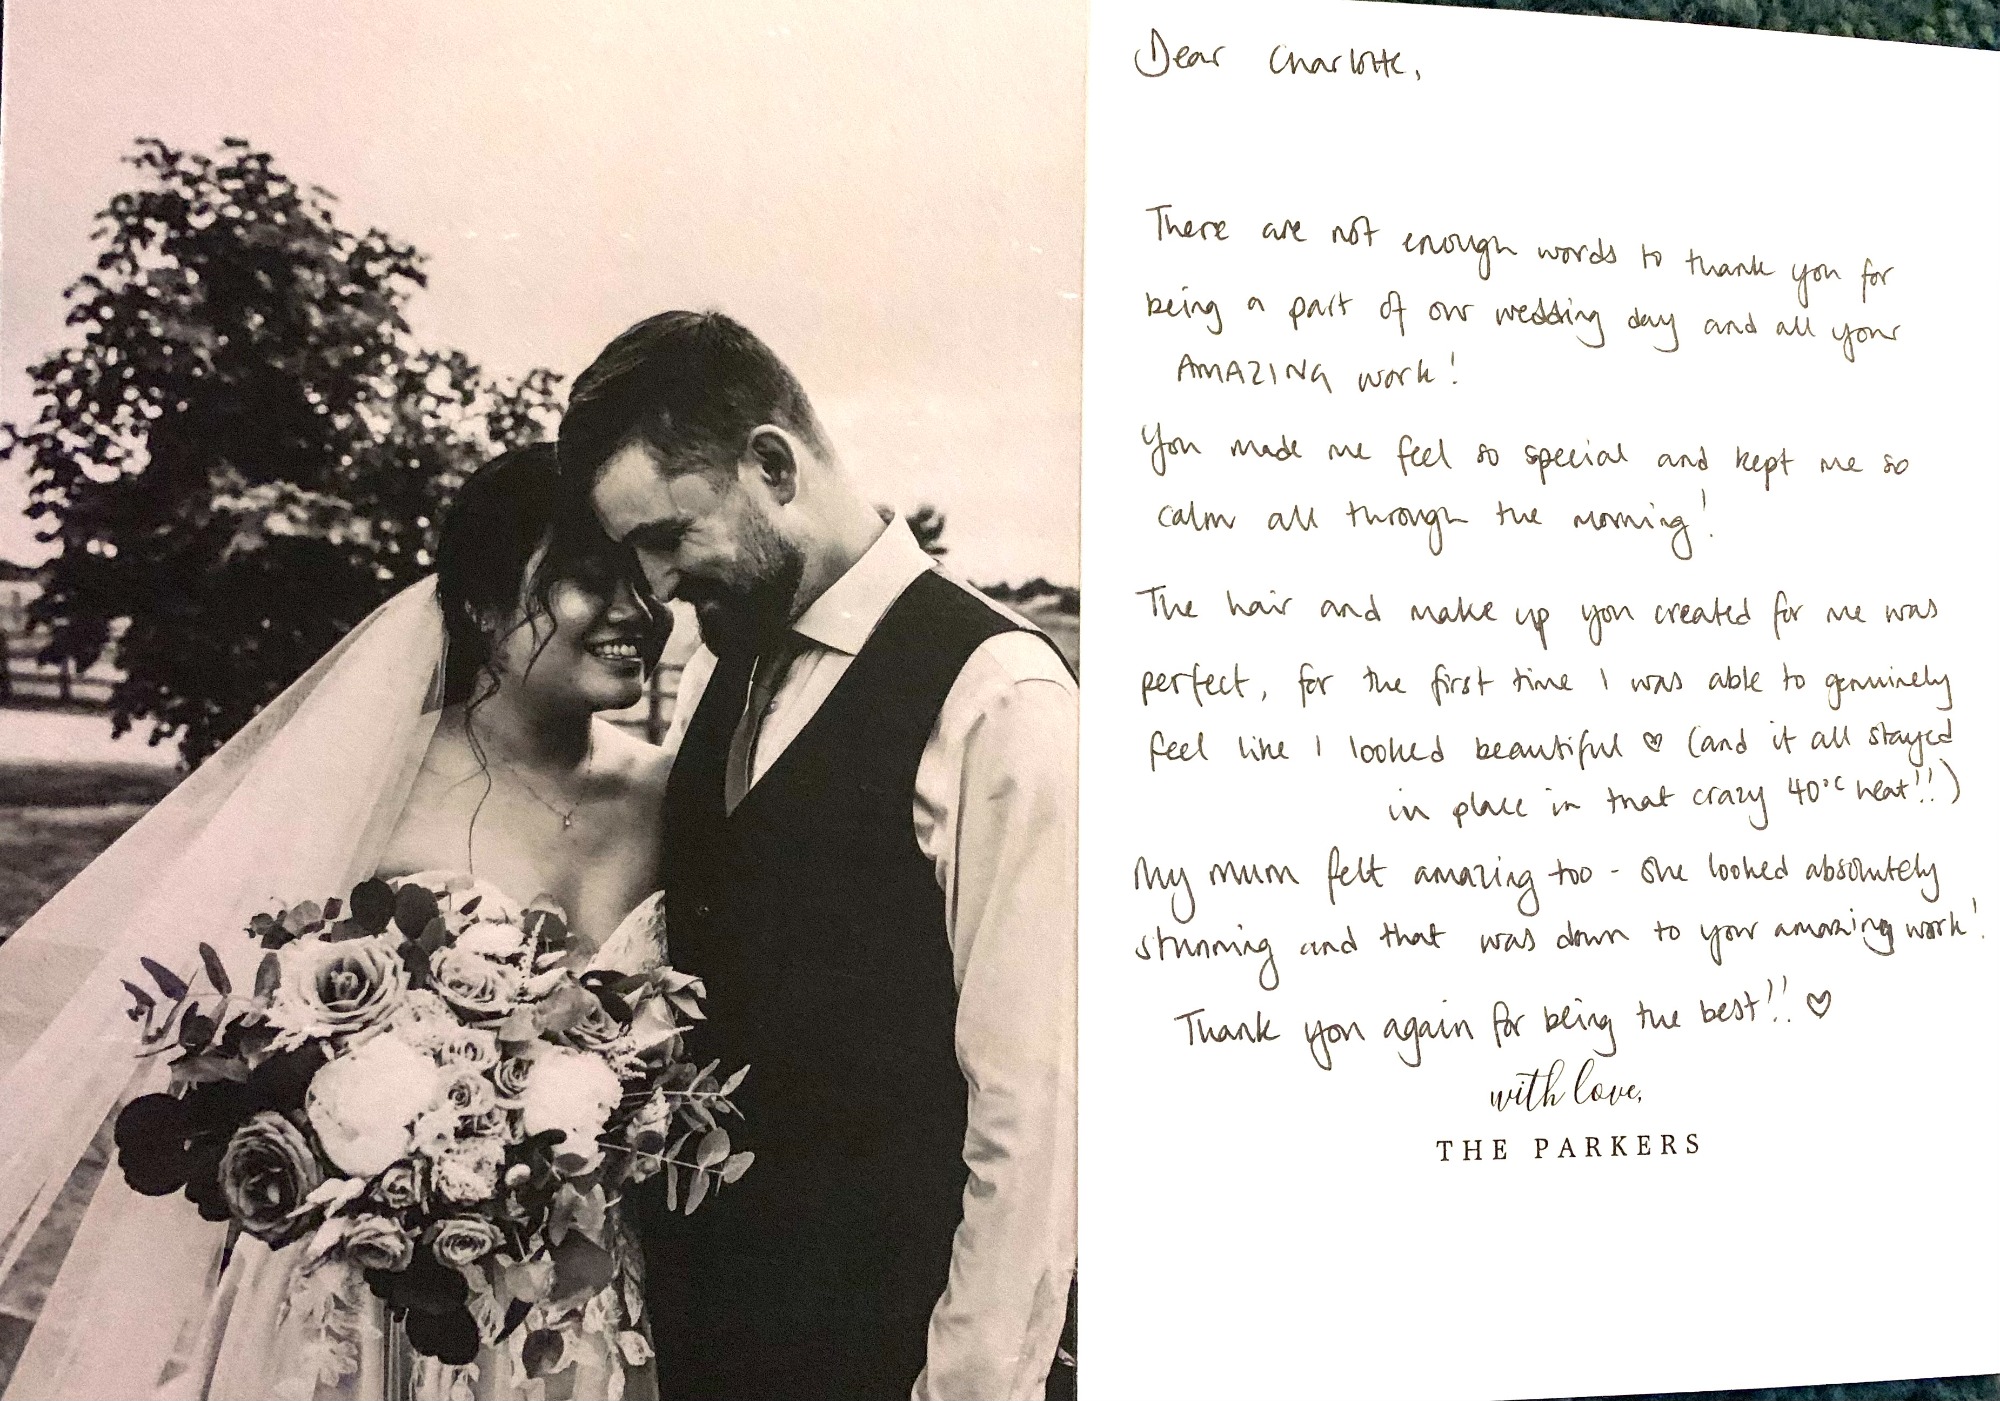 Dear Charlotte,
There are not enough words to thank you for
being a part of our wedding day and all your
AMAZING work!
You made me feel so special and kept me so
calm all through the morning!
The hair and make up you created for me was
perfect, for the first time I was able to genuinely
feel like I looked beautiful ♡ (and it all stayed
in place in that crazy 40°C heat!!)
My mum felt amazing too - she looked absolutely
stunning and that was down to your amazing work!
Thank you again for being the best!! ♡
with love,
THE PARKERS